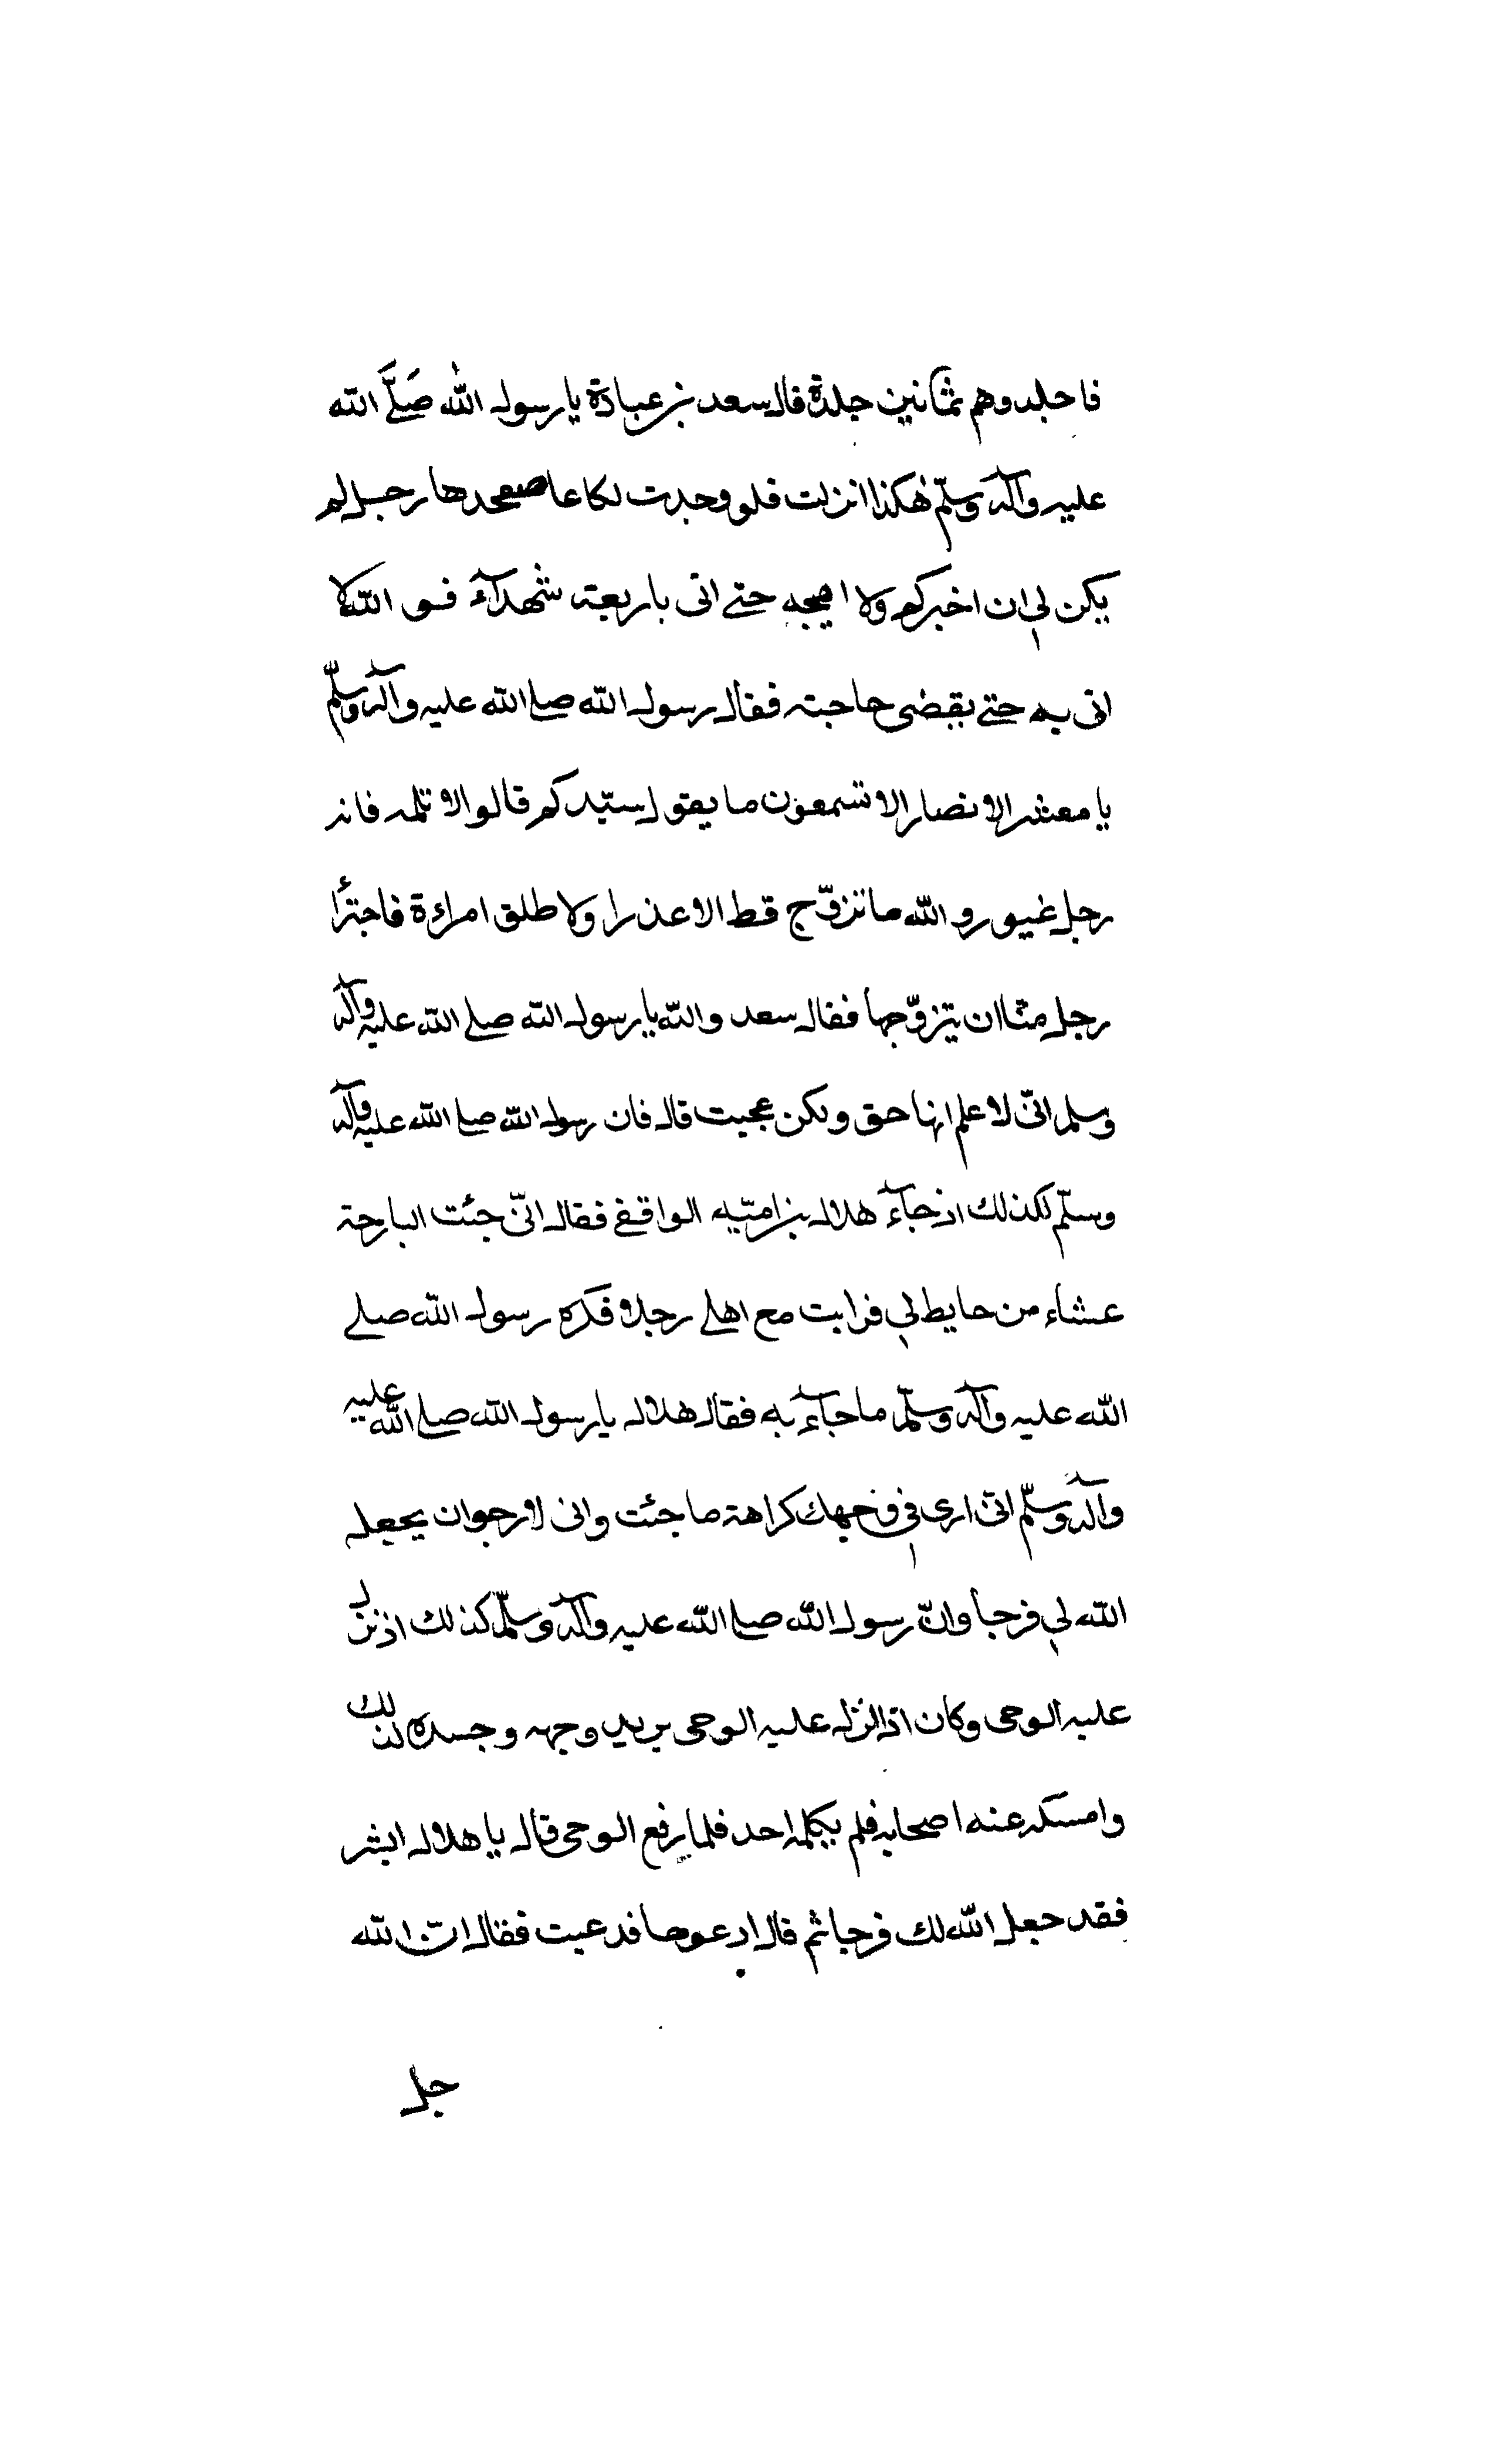 فاجلدوهم ثمانين جلدة قال سعد بن عبادة يا رسول الله صَلَّى الله
عليه وآله وسلّم هٰكذا انزلت فلو وجدت لكاعا رجل لم
يكن لي ان اخبركم ولا اهيجه حتى اتى باربعة شهدآء فو الله لا
اتى به حتى يقضى حاجته فقال رسول الله صلى الله عليه وآله وسلّم
يا معشر الانصار الا تسمعون ما يقول سيّدكم قالوا لا تلمه فانه
رجل غيور والله ما تزوّج قط الا عذرا ولا طلق امراءة فاجترأ
رجل منّا ان يتزوّجها فقال سعد والله يا رسول الله صلى الله عليه وآله
وسلم انّى لا علم انها حق ولكن عجبت قال فان رسول الله صلى الله عليه وآله
وسلّم لكذلك اذ جآء هلال بن اميّه الواقفى فقال انّى جئت البارحة
عشاء من حايط لي فرايت مع اهلى رجلا فكره رسول الله صلى
الله عليه وآله وسلّم ما جآء به فقال هلال يا رسول الله صلى الله عليه
وآله وسلّم انّى ارى في وجهك كراهة ما جئت وانى لارجو ان يجعل
الله لي فرجا وانّ رسول الله صلى الله عليه وآله وسلّم كذلك اذ نزل
عليه الوحى وكان اذا نزل عليه الوحى يربد وجهه وجسده لذلك
وامسك عنه اصحابه فلم يكلمه احد فلما رفع الوحى قال يا هلال ابشر
فقد جعل الله لك فرجا ثم قال ادعوها فدعيت فقال ان الله
جل